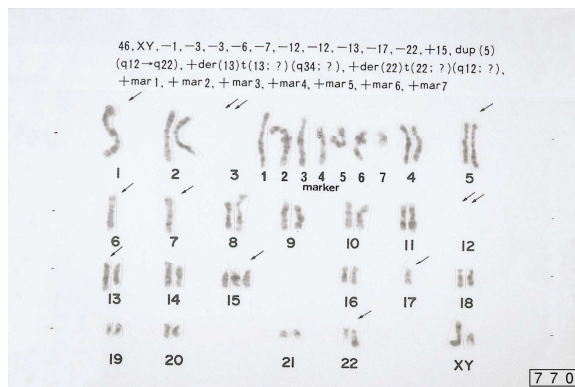 46, XY, −1, −3, −3, −6, −7, −12, −12, −13, −17, −22, +15, dup (5)
(q12→q22), +der(13)t(13; ?)(q34; ?), +der(22)t(22; ?)(q12; ?),
+mar1, +mar2, +mar3, +mar4, +mar5, +mar6, +mar7
1 2 3 1 2 3 4 5 6 7 4 5
marker
6 7 8 9 10 11 12
13 14 15 16 17 18
19 20 21 22 XY
770